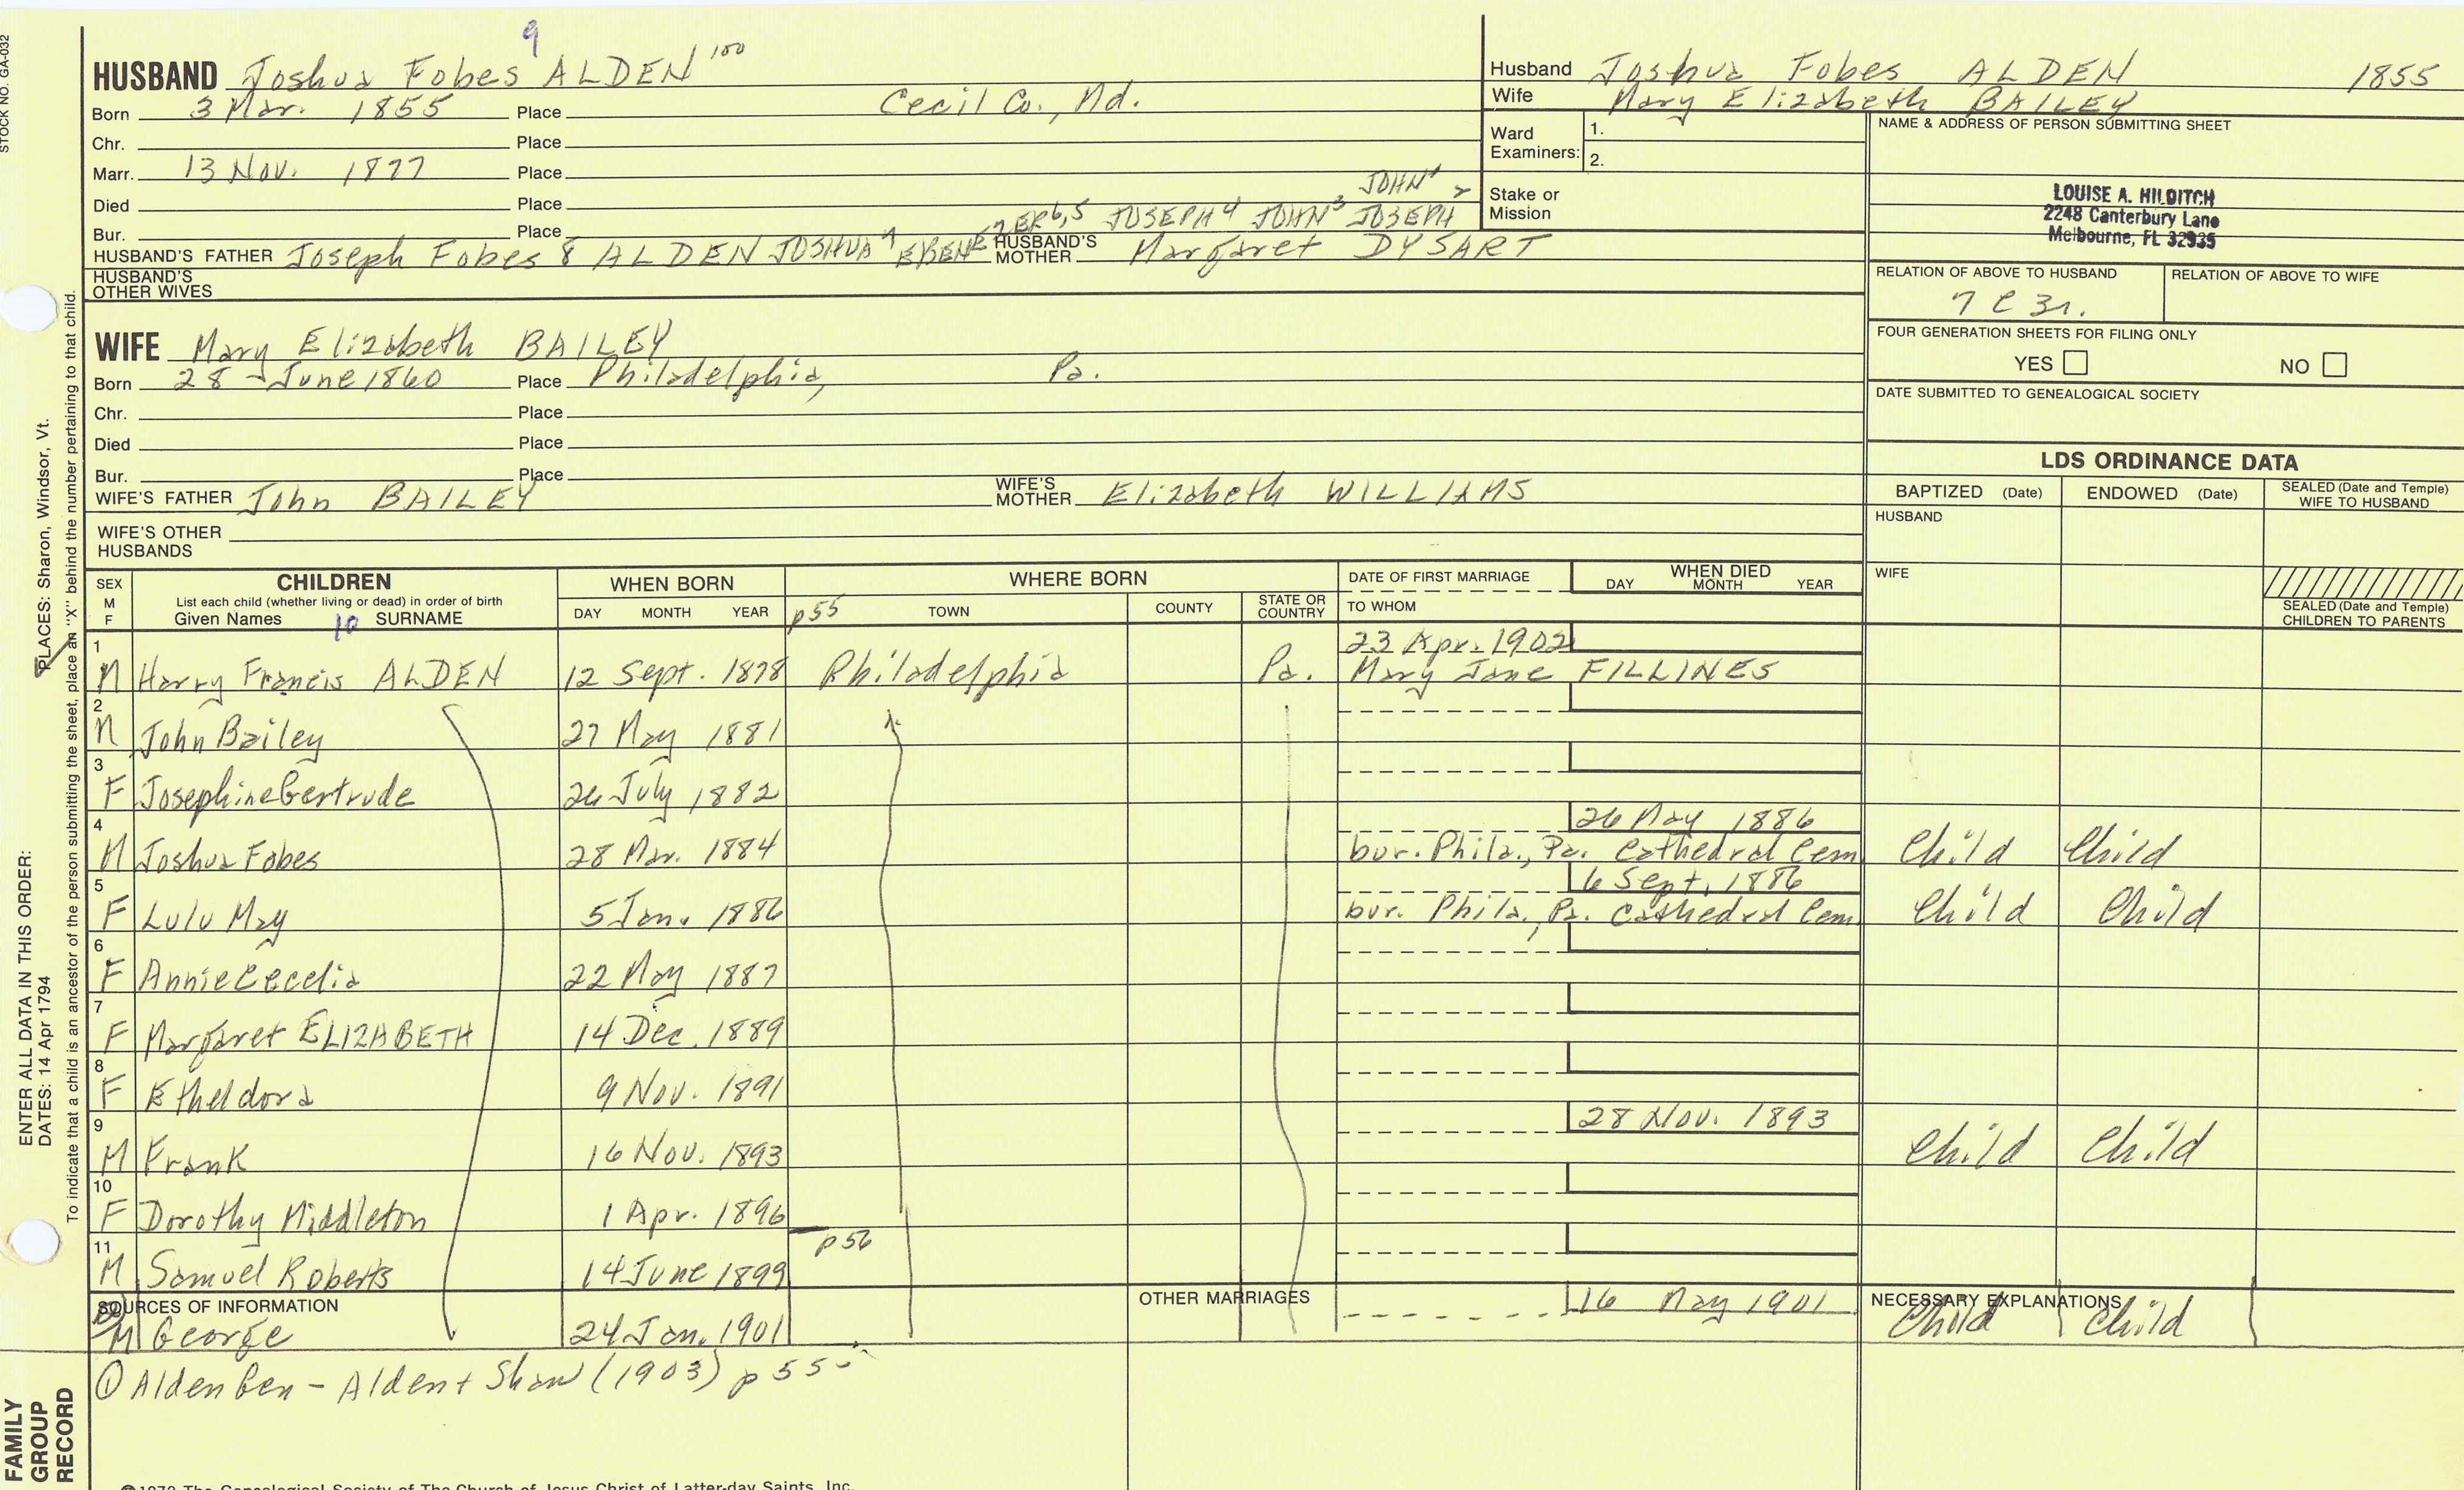 STOCK NO. GA-032
9
HUSBAND Joshua Fobes ALDEN 100
Born 3 Mar. 1855 Place Cecil Co., Md.
Chr. Place
Marr. 13 Nov. 1877 Place
Died Place
Bur. Place
JOHN1
JOSEPH4 JOHN3 JOSEPH 2
HUSBAND'S FATHER Joseph Fobes 8 ALDEN JOSHUA7 EBENEZER6,5 HUSBAND'S MOTHER Margaret DYSART
HUSBAND'S OTHER WIVES
WIFE Mary Elizabeth BAILEY
Born 28 June 1860 Place Philadelphia, Pa.
Chr. Place
Died Place
Bur. Place
WIFE'S FATHER John BAILEY WIFE'S MOTHER Elizabeth WILLIAMS
WIFE'S OTHER HUSBANDS
Husband Joshua Fobes ALDEN 1855
Wife Mary Elizabeth BAILEY
Ward Examiners: 1.
2.
Stake or Mission
NAME & ADDRESS OF PERSON SUBMITTING SHEET
LOUISE A. HILDITCH
2248 Canterbury Lane
Melbourne, FL 32935
RELATION OF ABOVE TO HUSBAND RELATION OF ABOVE TO WIFE
7 C 3r.
FOUR GENERATION SHEETS FOR FILING ONLY
YES NO
DATE SUBMITTED TO GENEALOGICAL SOCIETY
LDS ORDINANCE DATA
BAPTIZED (Date) ENDOWED (Date) SEALED (Date and Temple) WIFE TO HUSBAND
HUSBAND
WIFE
SEALED (Date and Temple) CHILDREN TO PARENTS
SEX M F CHILDREN WHEN BORN WHERE BORN DATE OF FIRST MARRIAGE WHEN DIED
List each child (whether living or dead) in order of birth DAY MONTH YEAR p55 TOWN COUNTY STATE OR COUNTRY TO WHOM DAY MONTH YEAR
Given Names 10 SURNAME
1 23 Apr. 1902
M Harry Francis ALDEN 12 Sept. 1878 Philadelphia Pa. Mary Jane FILLINES
2
M John Bailey 27 May 1881
3
F Josephine Gertrude 26 July 1882
4 26 May 1886
M Joshua Fobes 28 Mar. 1884 bur. Phila., Pa. Cathedral Cem Child Child
5 6 Sept. 1886
F Lulu May 5 Jan. 1886 bur. Phila., Pa. Cathedral Cem Child Child
6
F Annie Cecelia 22 May 1887
7
F Margaret ELIZABETH 14 Dec. 1889
8
F Etheldora 9 Nov. 1891
9 28 Nov. 1893
M Frank 16 Nov. 1893 Child Child
10
F Dorothy Middleton 1 Apr. 1896
11 p56
M Samuel Roberts 14 June 1899
SOURCES OF INFORMATION OTHER MARRIAGES 16 May 1901 NECESSARY EXPLANATIONS
12 M George 24 Jan. 1901 Child Child
① Alden Gen - Alden + Shaw (1903) p 55-
©1972 The Genealogical Society of The Church of Jesus Christ of Latter-day Saints, Inc.
ENTER ALL DATA IN THIS ORDER:
DATES: 14 Apr 1794
PLACES: Sharon, Windsor, Vt.
To indicate that a child is an ancestor of the person submitting the sheet, place an "X" behind the number pertaining to that child.
FAMILY GROUP RECORD